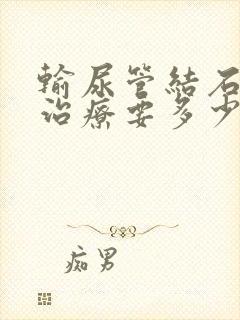 輸尿管結石
治療要多少
痴男